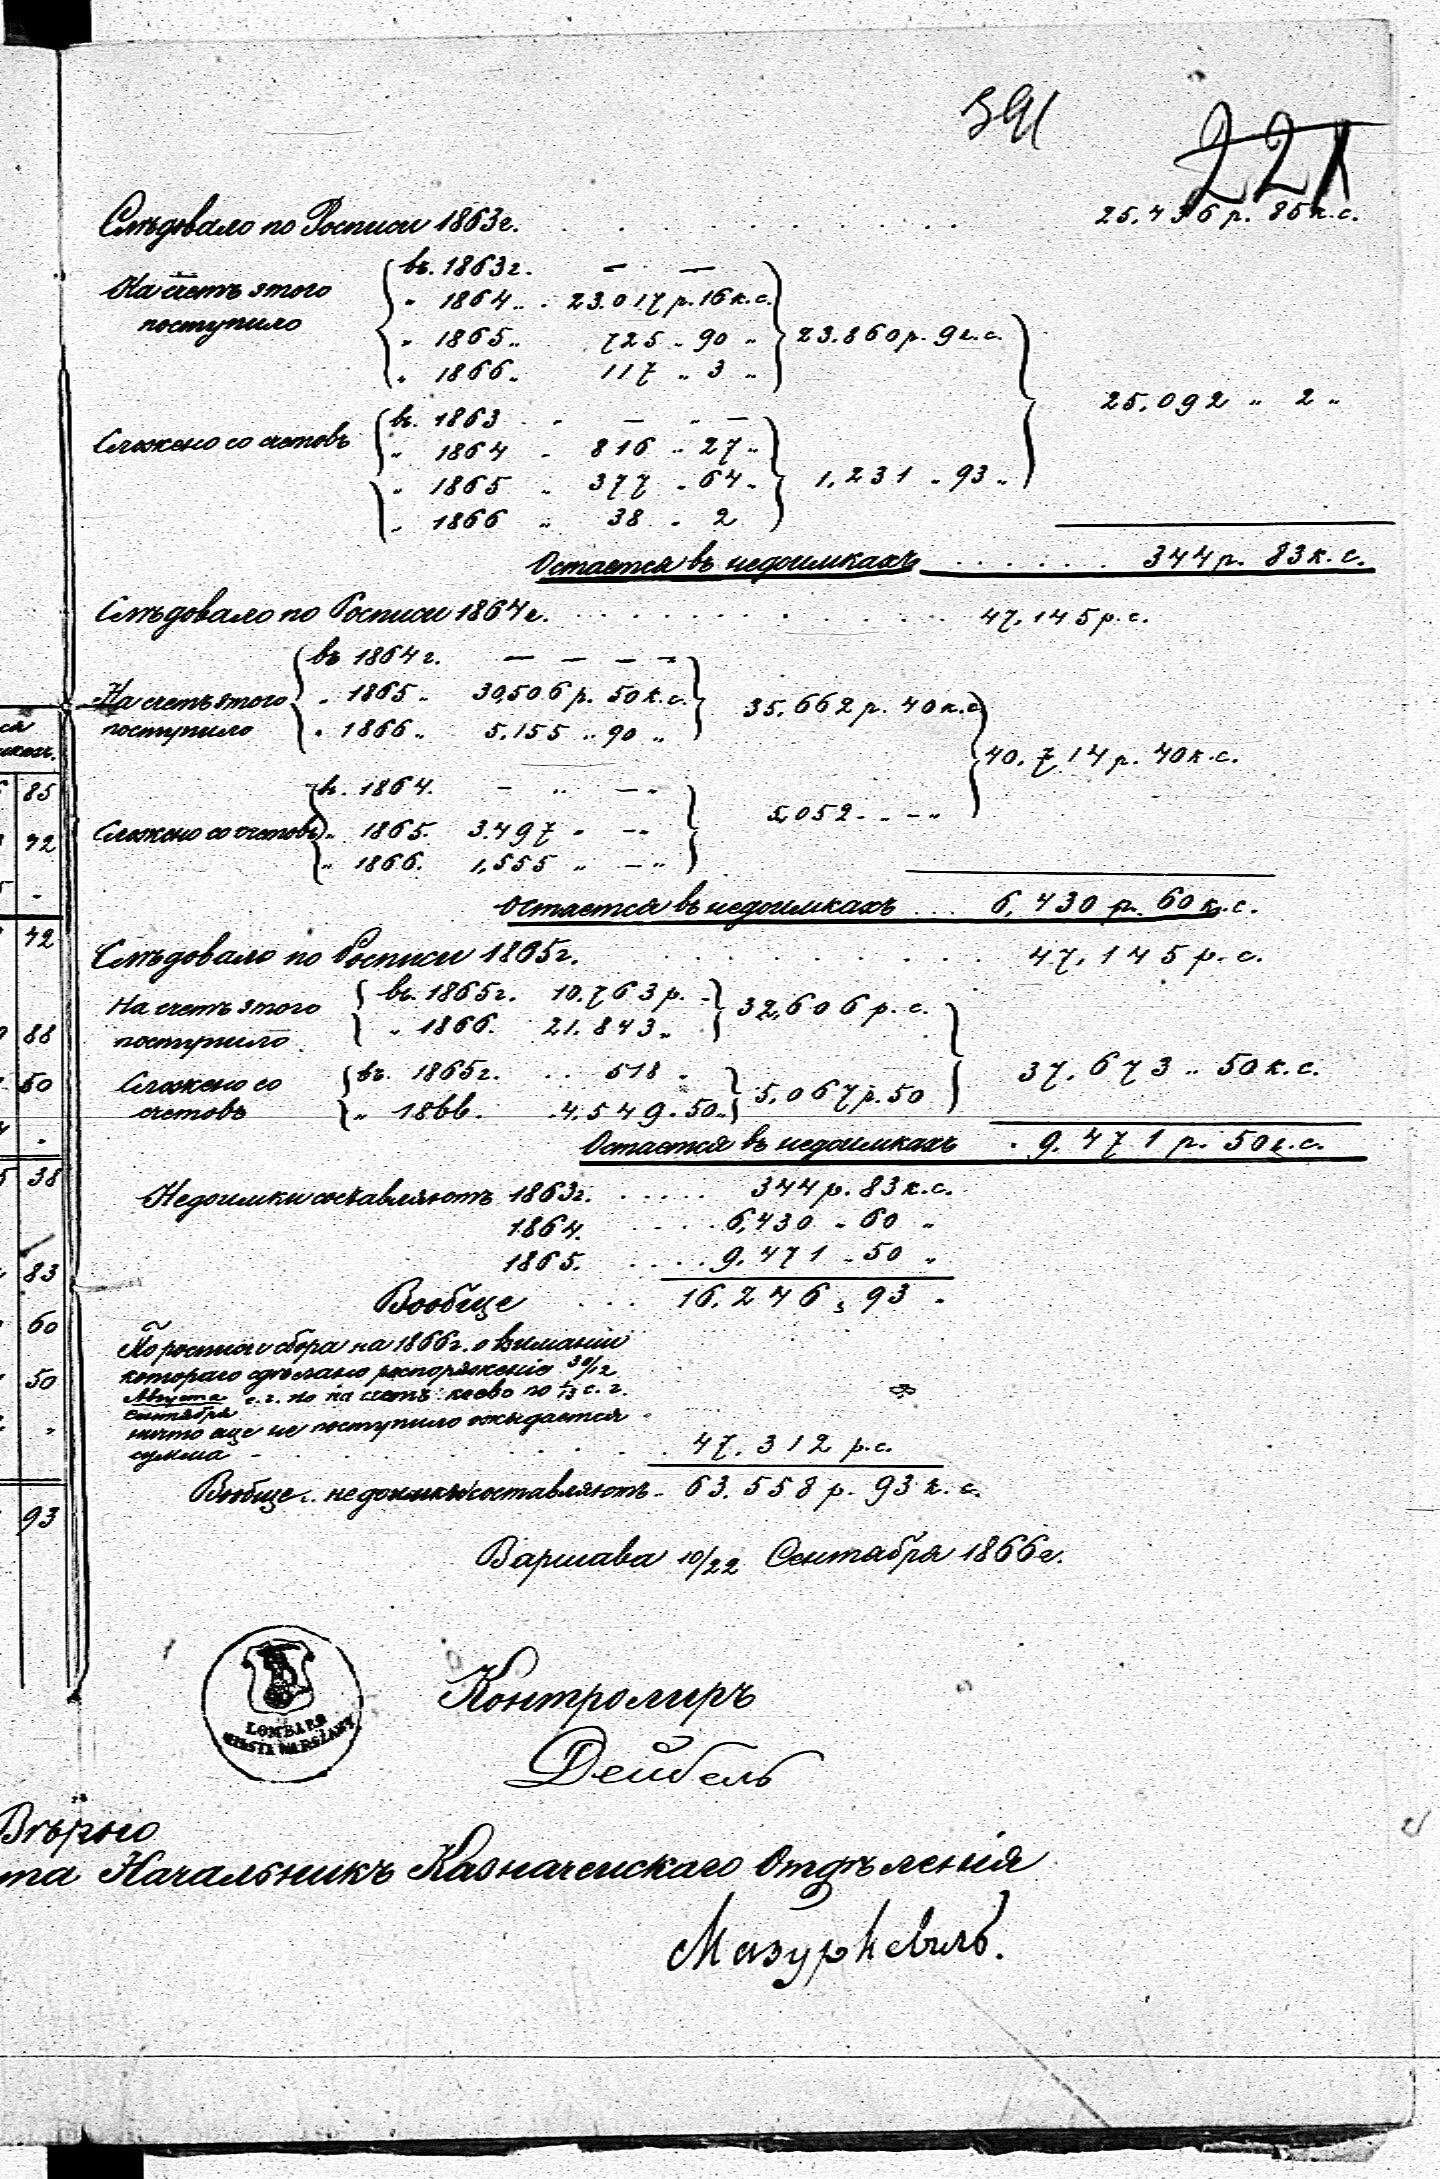 391
221
Слѣдовало по Росписи 1863г. . . . . . . . . . . 25.436 р. 85 к. с.
На счетъ этого поступило
въ 1863г. — —
" 1864 " . 23.017 р. 16 к. с.
" 1865 " 725 " 90 "
" 1866 " 117 " 3 "
23.860 р. 9 к. с.
Сложено со счетовъ
въ 1863 . " — " —
" 1864 " 816 " 27 "
" 1865 " 377 " 64 "
" 1866 " 38 " 2
1,231 " 93 "
25,092 " 2 "
Остается въ недоимкахъ . . . . . . 344 р. 83 к. с.
Слѣдовало по Росписи 1864 г. . . . . . . . . . 47,145 р. с.
На счетъ этого поступило
въ 1864 г. — — — —
" 1865 " 30,506 р. 50 к. с.
" 1866 " 5.155 " 90 "
35.662 р. 40 к. с.
Сложено со счетовъ
въ 1864. — " — "
" 1865. 3.497 " — "
" 1866. 1,555 " — "
5,052 " — "
40.714 р. 40 к. с.
Остается въ недоимкахъ . . . 6,430 р. 60 к. с.
Слѣдовало по Росписи 1865г. . . . . . . . . . 47,145 р. с.
На счетъ этого поступило
въ 1865г. 10.763 р. -
" 1866. 21.843 "
32,606 р. с.
Сложено со счетовъ
въ 1865г. . . 518 "
" 1866. . 4.549 " 50 "
5.067 р. 50
37.673 " 50 к. с.
Остается въ недоимкахъ . 9.471 р. 50 к. с.
Недоимки составляютъ 1863г. . . . . . 344 р. 83 к. с.
1864. . . . . 6,430 " 60 "
1865. . . . . 9.471 " 50 "
Вообще . . . 16.246 " 93 "
По росписи сбора на 1866г. о взиманіи
котораго сдѣлано распоряженіе 30/12
Августа
Сентября с. г. но на счетъ коево по 1/13 с. г.
ничто еще не поступило ожидается
сумма . . . . . . 47.312 р. с.
Вообще недоимки составляютъ 63.558 р. 93 к. с.
Варшава 10/22 Сентября 1866г.
LOMBARD
MIASTA WARSZAWY
Контролиръ
Дейбель
Вѣрно
та Начальникъ Казначейскаго Отдѣленія
Мазуркевичъ.
85
72
-
72
88
50
-
38
83
60
50
"
93